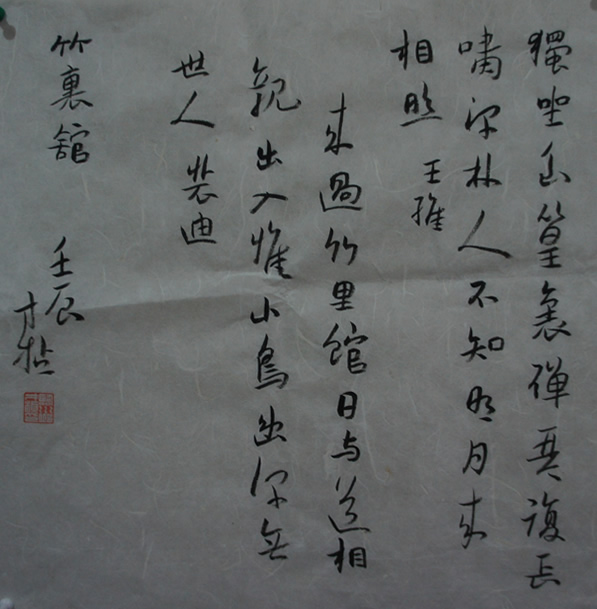 獨坐幽篁裏彈琴復長
嘯深林人不知明月来
相照 王維
来過竹里館日与道相
親出入惟山鳥幽深無
世人 裴迪
竹裏館
壬辰